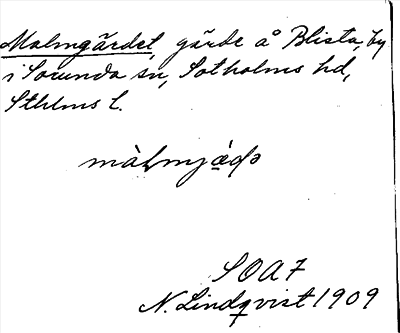 Malmgärdet, gärde å Blista, by
i Sorunda sn, Sotholms hd,
Sthlms l.
SOAF
N. Lindqvist 1909